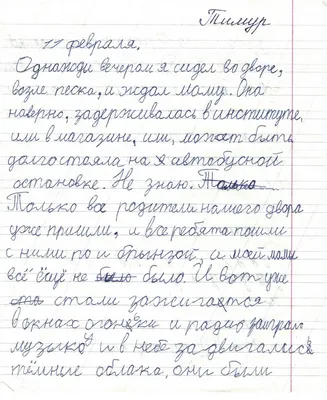 Тимур
11 февраля.
Однажди вечерам я сидел во дворе,
возле песка, и ждал маму. Она
наверно, задерживалась в институте,
или в магазине, или, можат быть
долго стояла на автобусной
остановке. Не знаю. Только
Только все родители нашего двора
уже пришли, и все ребята пошли
с ними по и брынзой, а моей мами
всё ещё не было было. И вот уже
стали зажигатся
в окнах огоньки и радио заиграл
музыку и в небе задвигались
тёмние облака, они были